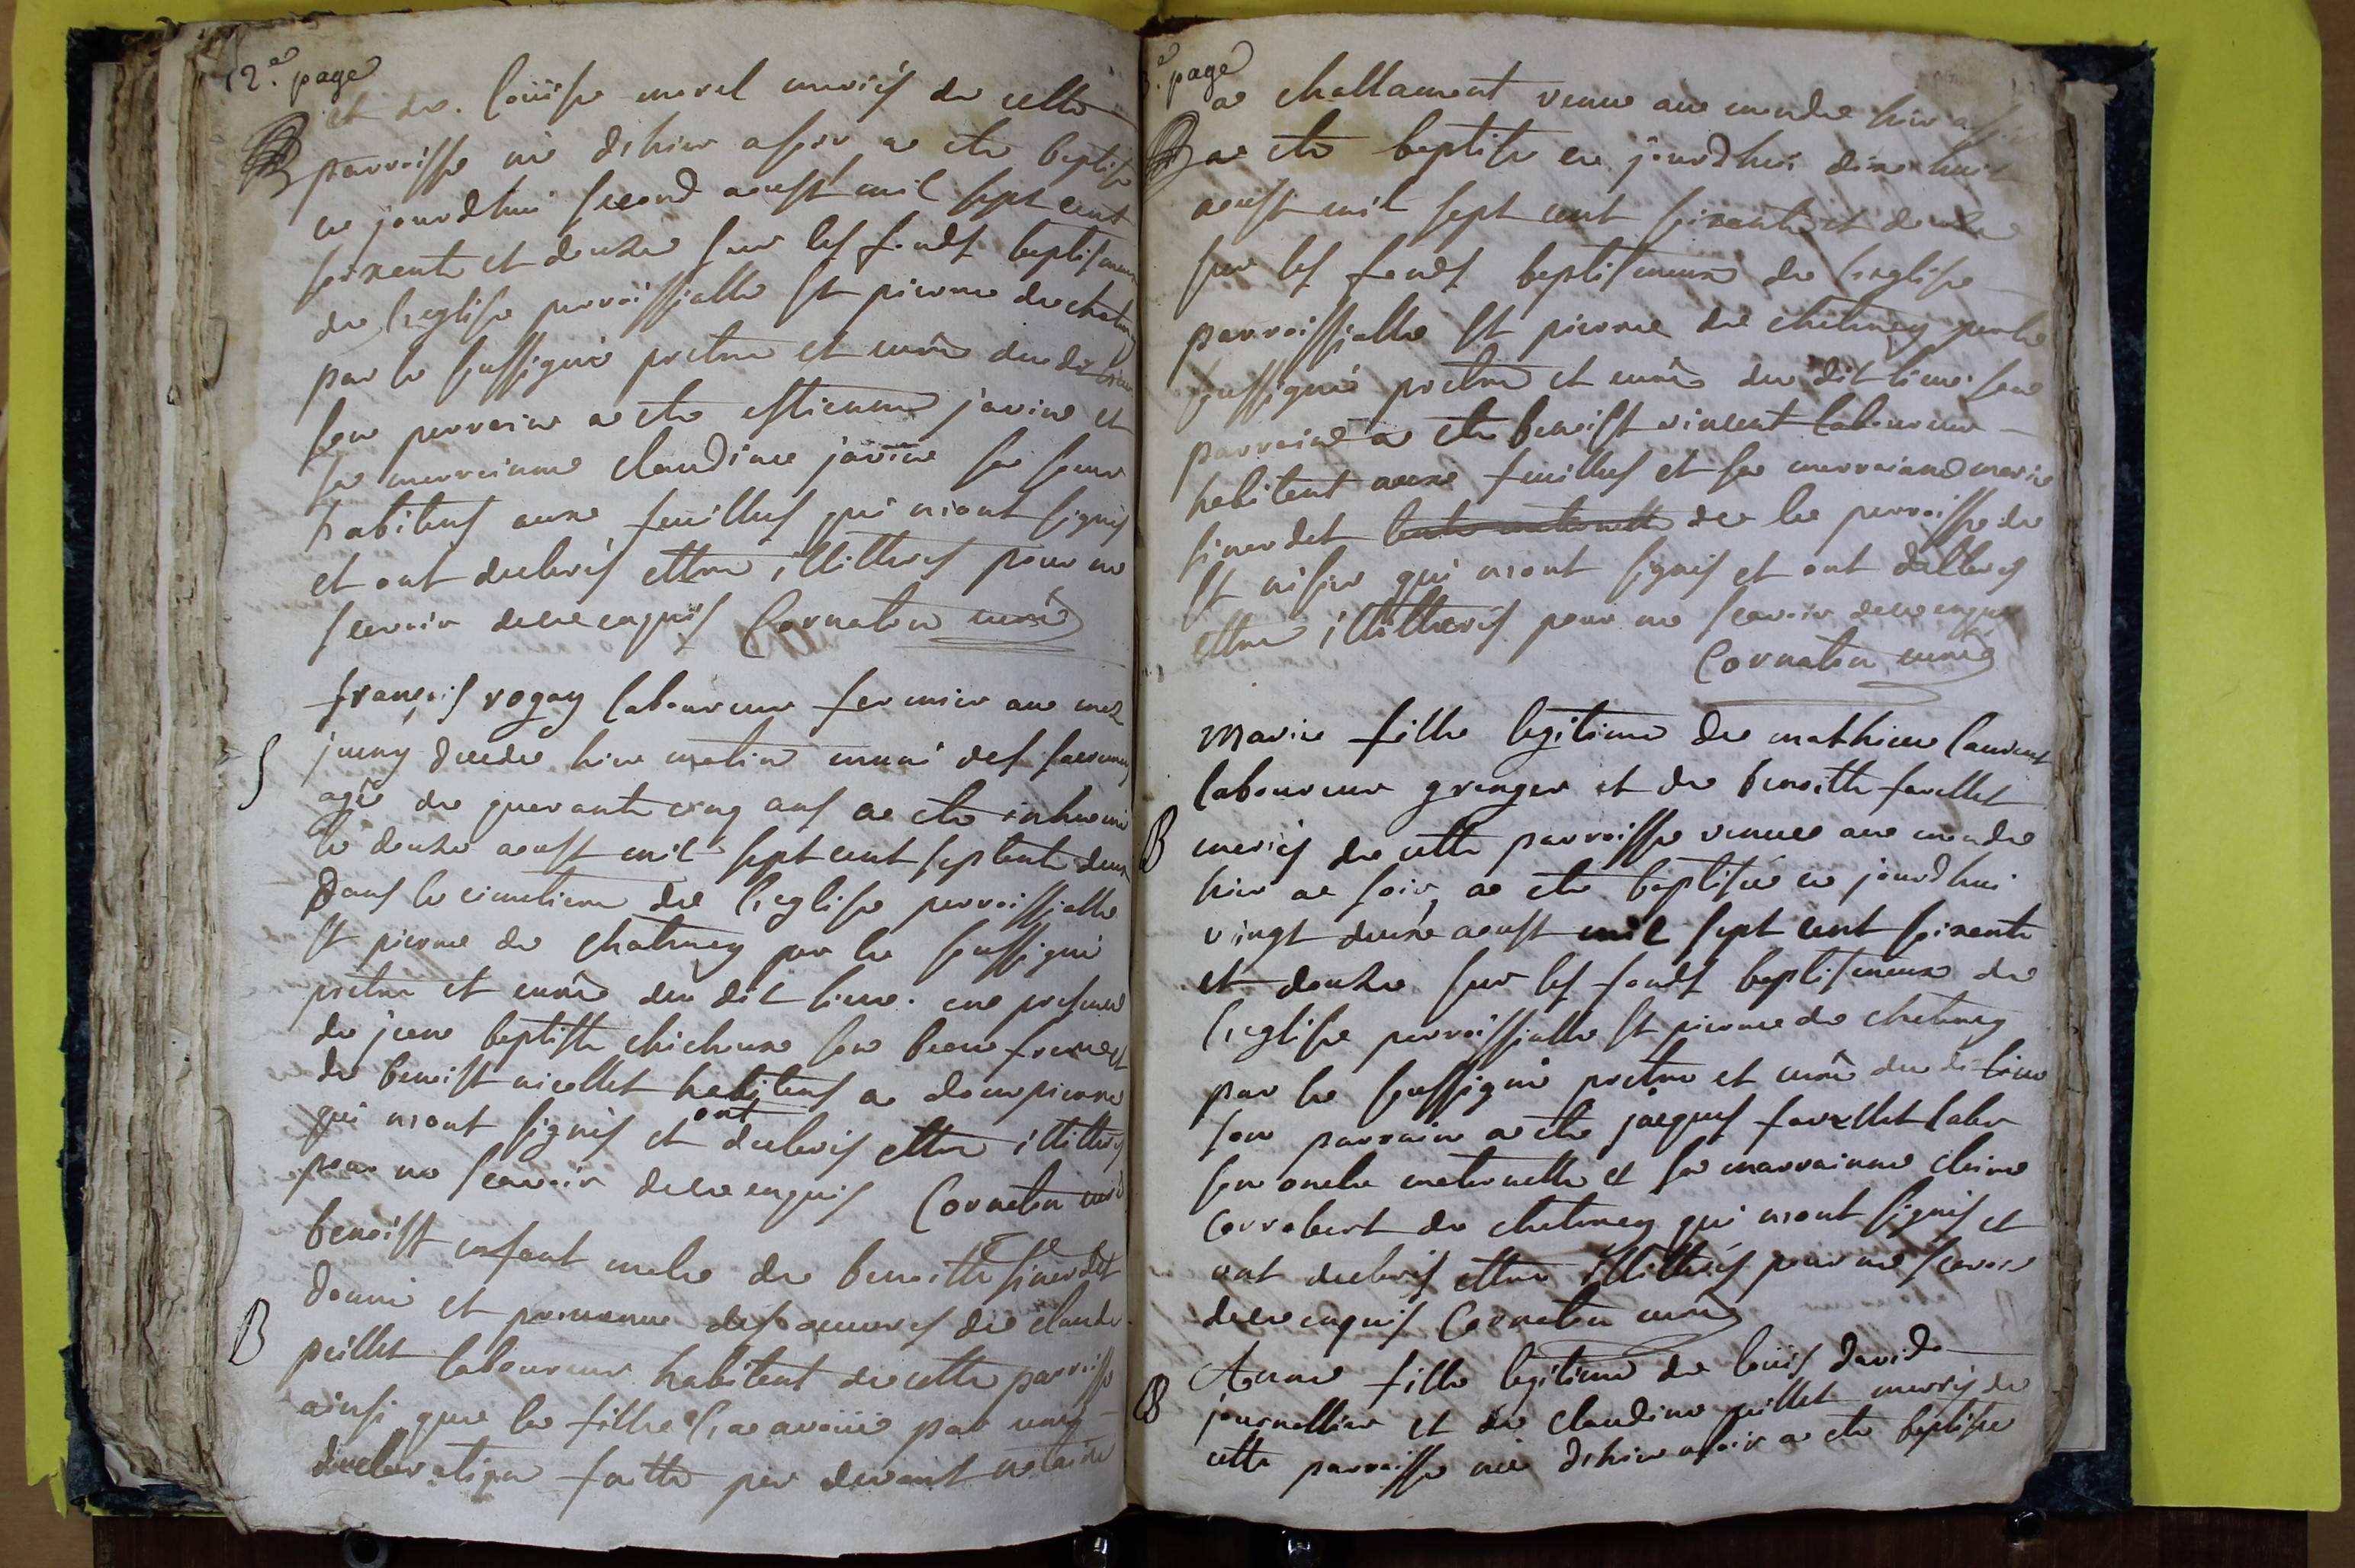 12.e page
et de Loüise morel mariés de cette
B parroisse né d'hier asoir a ete baptise
ce jourdhui second aoust mil sept cent
soixente et douze sur les fonds baptismaux
de l'eglise parroissialle St pierre de chatenay
par le soussigné pretre et curé du dit lieu
son parrain a ete estienne javin et
sa marrainne claudine javin sa soeur
habitans aux feuilles qui n'ont signés
et ont declarés ettre illitterés pour ne
scavoir deces enquis Cornaton curé
françois rogay laboureur fermier au mas
S jueny decedé hier matin muni des sacremens
agé de quarante cinq ans a ete inhumé
le douze aoust mil sept cent septente deux
Dans le cimetiere de l'eglise parroissialle
St pierre de chatenay par le soussigné
pretre et curé du dit lieu. en presence
de jean baptiste chicheux son beau frere et
de benoist nicollet habitens a dompierre
qui n'ont signés et ont declarés ettre illitterés
pour ne scavoir deces enquis Cornaton curé
benoist enfant male de benoitte sinerdet
B donné et provenue des oeuvres de claude
peillet laboureur habitent de cette parroisse
ainsi que la fille l'a avoüé par une
declaration faitte par devant notaire
3.e page
a challamont venu au monde hier asoir
B a ete baptise ce jourdhui dix huit
aoust mil sept cent soixente et douze
sur les fonds baptismaux de l'eglise
parroissialle St pierre de chatenay par le
soussigné pretre et curé du dit lieu. son
parrain a ete benoist vincent laboureur
habitent aux feuilles et sa marrainne marie
sinerdet de la parroisse de
St nisier qui n'ont signés et ont declarés
ettre illitterés pour ne scavoir deces enquis
Cornaton curé
Marie fille legitime de mathieu laurent
laboureur granger et de benoitte favellet
B mariés de cette parroisse venue au monde
hier au soir, a ete baptisée ce jourdhui
vingt deux aoust mil sept cent soixente
et douze sur les fonds baptismaux de
l'eglise parroissialle St pierre de chatenay
par le soussigné pretre et curé du dit lieu
son parrain a ete jacques favellet labr
son oncle maternelle et sa marrainne claire
corrobert de chatenay qui n'ont signés et
ont declarés ettre illitterés pour ne scavoir
deces enquis Cornaton curé
Anne fille legitime de loüis david
B journallier et de claudine peillet mariés de
cette parroisse née d'hier asoir a ete baptisée